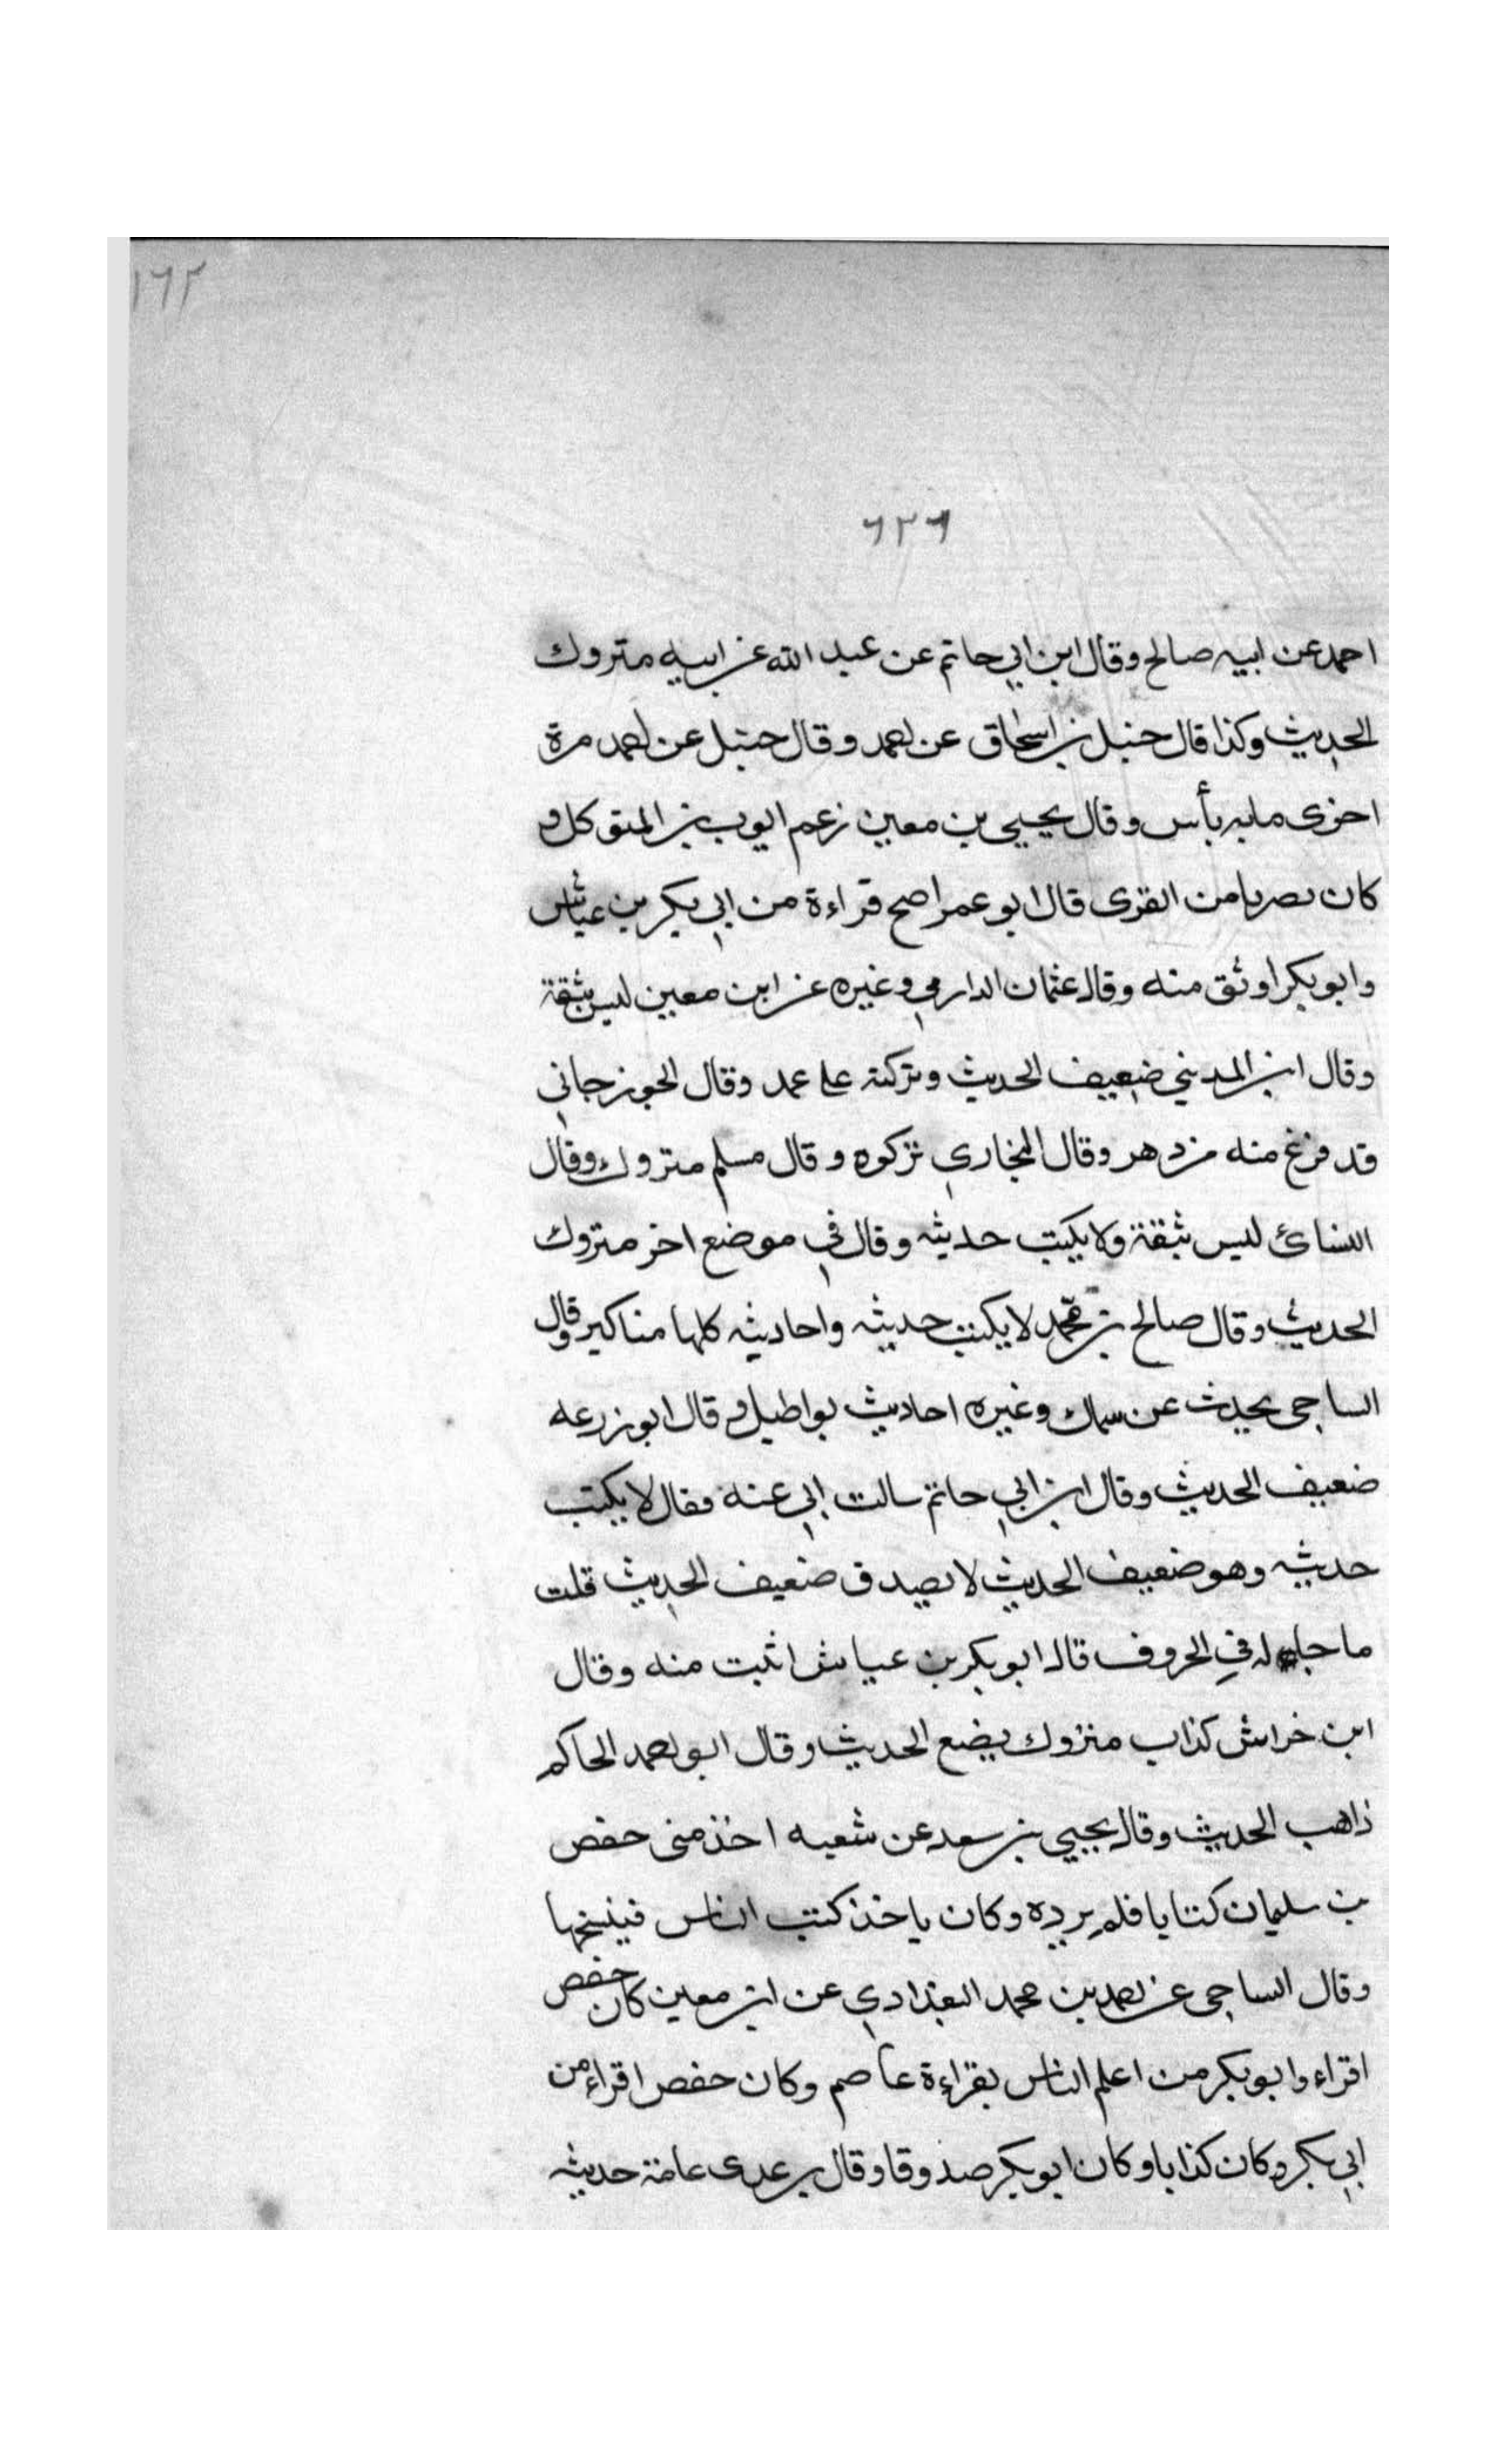 ١٦٢
٦٢٦
احمد عن ابيه صالح وقال ابن ابي حاتم عن عبد الله عن ابيه متروك
الحديث وكذا قال حنبل بن اسحاق عن احمد وقال حنبل عن احمد مرة
اخرى ما به بأس وقال يحيى بن معين زعم ايوب بن المتوكل و
كان بصريا من القرى قال ابو عمر اصح قراءة من ابي بكر بن عياش
وابو بكر اوثق منه وقال عثمان الدارمي وغيره عن ابن معين ليس بثقة
وقال ابن المديني ضعيف الحديث وتركته على عمد وقال الجوزجاني
قد فرغ منه من دهر وقال البخاري تركوه وقال مسلم متروك وقال
النسائ ليس بثقة ولا يكتب حديثه وقال في موضع اخر متروك
الحديث وقال صالح بن محمد لا يكتب حديثه واحاديثه كلها مناكير وقال
الساجى يحدث عن سماك وغيره احاديث بواطيل وقال ابو زرعه
ضعيف الحديث وقال ابن ابي حاتم سالت ابي عنه فقال لا يكتب
حديثه وهو ضعيف الحديث لا يصدق ضعيف الحديث قلت
ما حاله في الحروف قال ابو بكر بن عياش اثبت منه وقال
ابن خراش كذاب متروك يضع الحديث وقال ابو احمد الحاكم
ذاهب الحديث وقال يحيى بن سعد عن شعبه اخذ منى حفص
بن سليمان كتابا فلم يرده وكان ياخذ كتب الناس فينسخها
وقال الساجى عن احمد بن محمد البغدادي عن ابن معين كان حفص
اقراء وابو بكر من اعلم الناس بقراءة عاصم وكان حفص اقراء من
ابي بكر وكان كذابا وكان ابو بكر صدوقا وقال بن عدى عامة حديثه